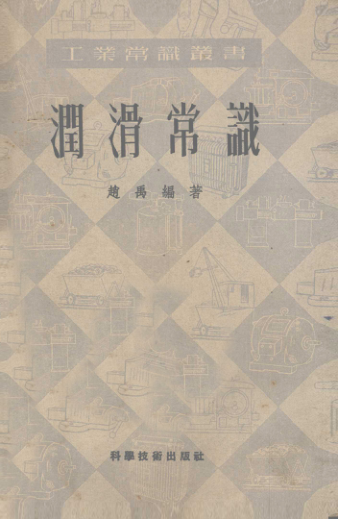 工業常識叢書
潤滑常識
趙禹編著
科學技術出版社